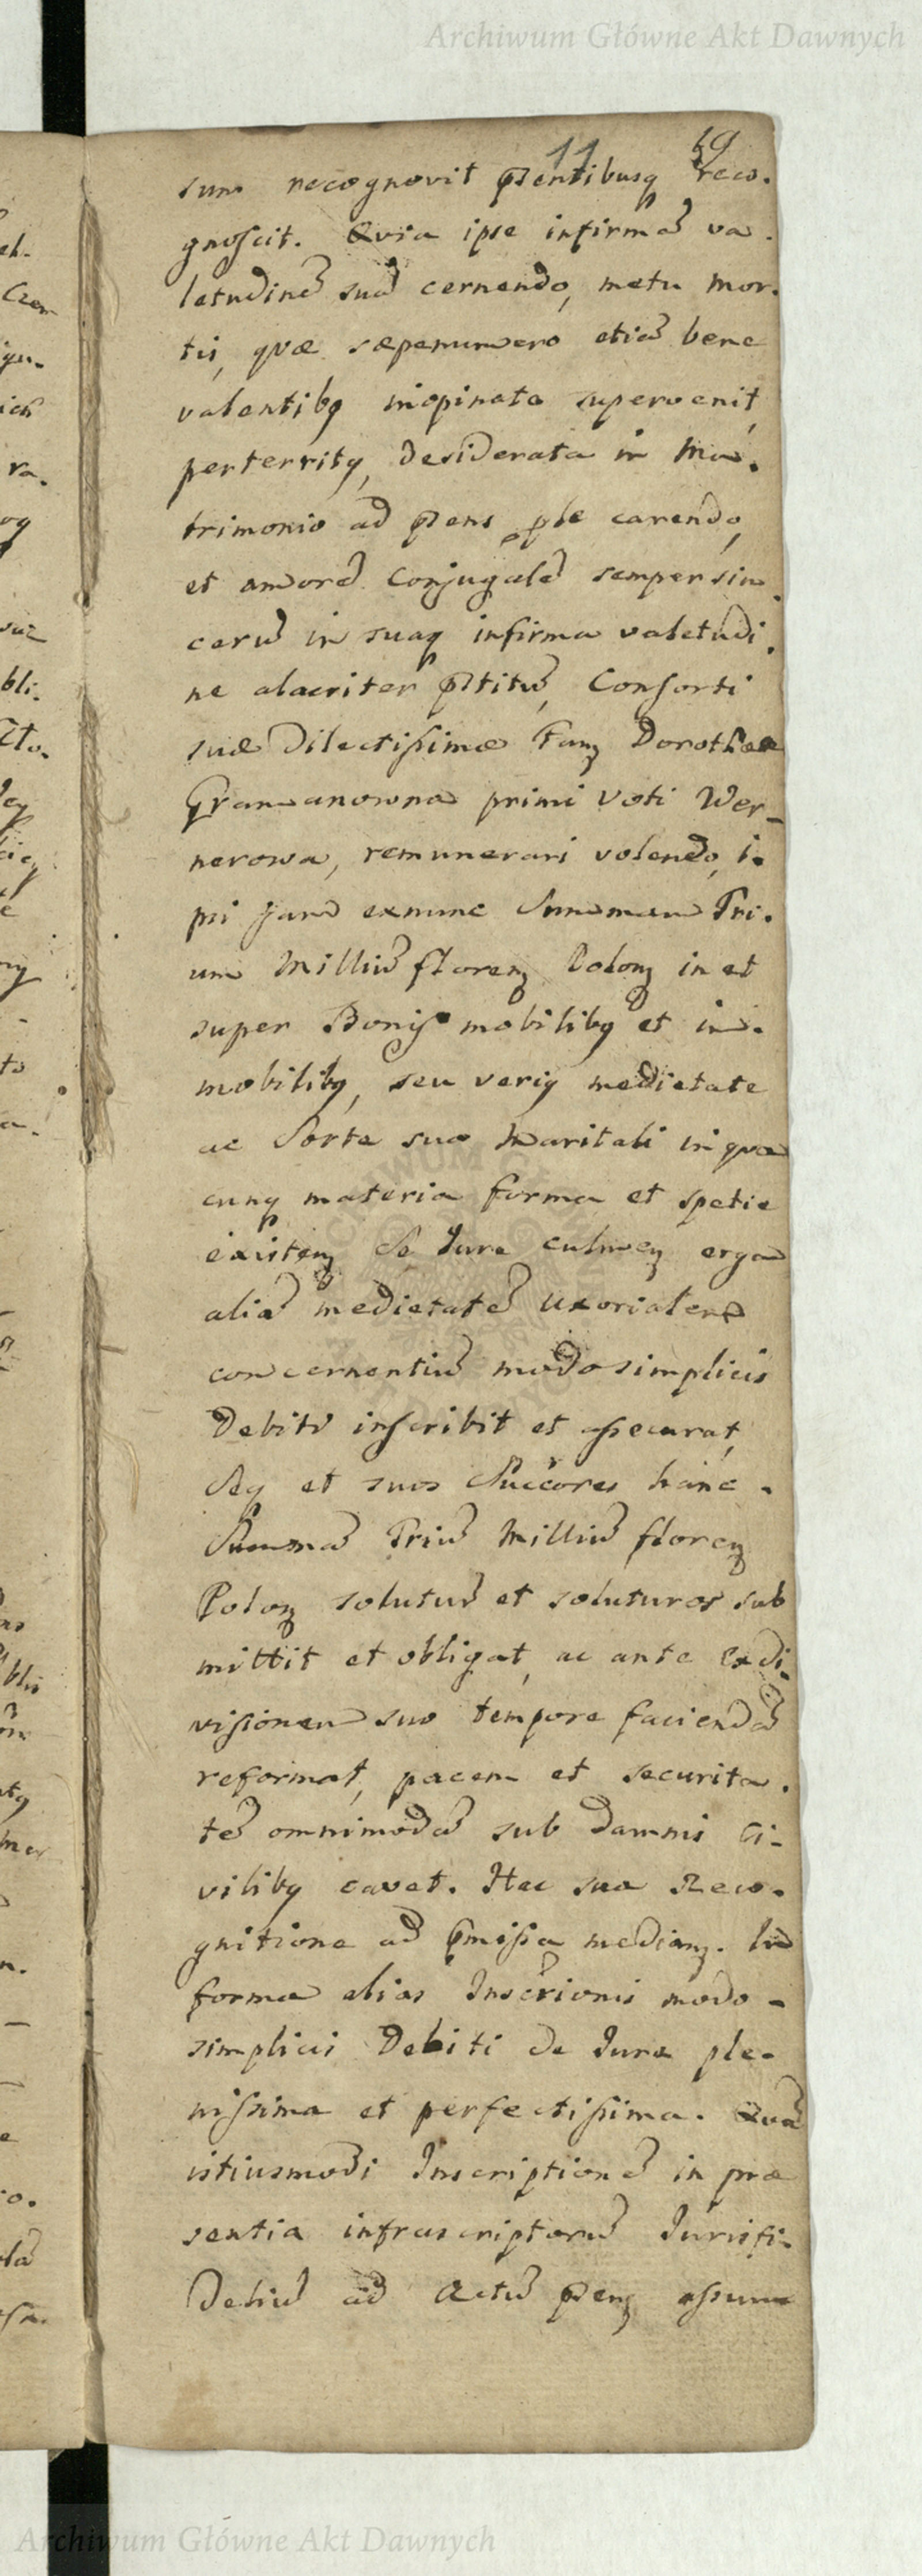 Archiwum Główne Akt Dawnych
11 59
sum recognovit pñentibusq reco.
gnoscit. Quia ipse infirmã va.
letudinẽ suã cernendo, metu mor.
tis, quæ sæpenumero etiã bene
valentibꝫ inopinata supervenit,
perterritꝫ, desiderata in Ma.
trimonio ad pñens ple carendo,
et amorẽ Conjugalẽ semper sin
cerũ in suaq infirma valetudi.
ne alacriter pñtitũ, Consorti
suæ Dilectissimæ Famꝫ Dorothæa
Gramanowna primi Voti Wer-
nerowa, remunerari volendo, i.
psi jam exnunc Summam Tri.
um Milliũ florenꝫ Polonꝫ in et
super Bonis mobilibꝫ et im.
mobilibꝫ, seu veriꝫ medietate
ac Sorte sua Maritali in qua
cunq materia forma et spetie
existenꝫ de Jure culmenꝫ erga
aliã medietatẽ Uxorialem
concernentiũ modo simplicis
Debiti inscribit et assecurat,
Seq et suos Succores hanc.
Summã Triũ Milliũ florenꝫ
Polonꝫ solutuũ et soluturos sub
mittit et obligat, ac ante exdi.
visionem suo tempore faciendã
reformat, pacem et securita.
tẽ omnimodã sub damnis Ci-
vilibꝫ cavet. Hac sua Reco.
gnitione ad pmissa medianꝫ. In
forma alias Inscrionis modo -
simplicis Debiti de Jure ple-
nissima et perfectissima. Quã
istiusmodi Inscriptionẽ in præ
sentia infrascriptorũ Jurisfi-
deliũ ad Actũ pñenꝫ assum
Archiwum Główne Akt Dawnych